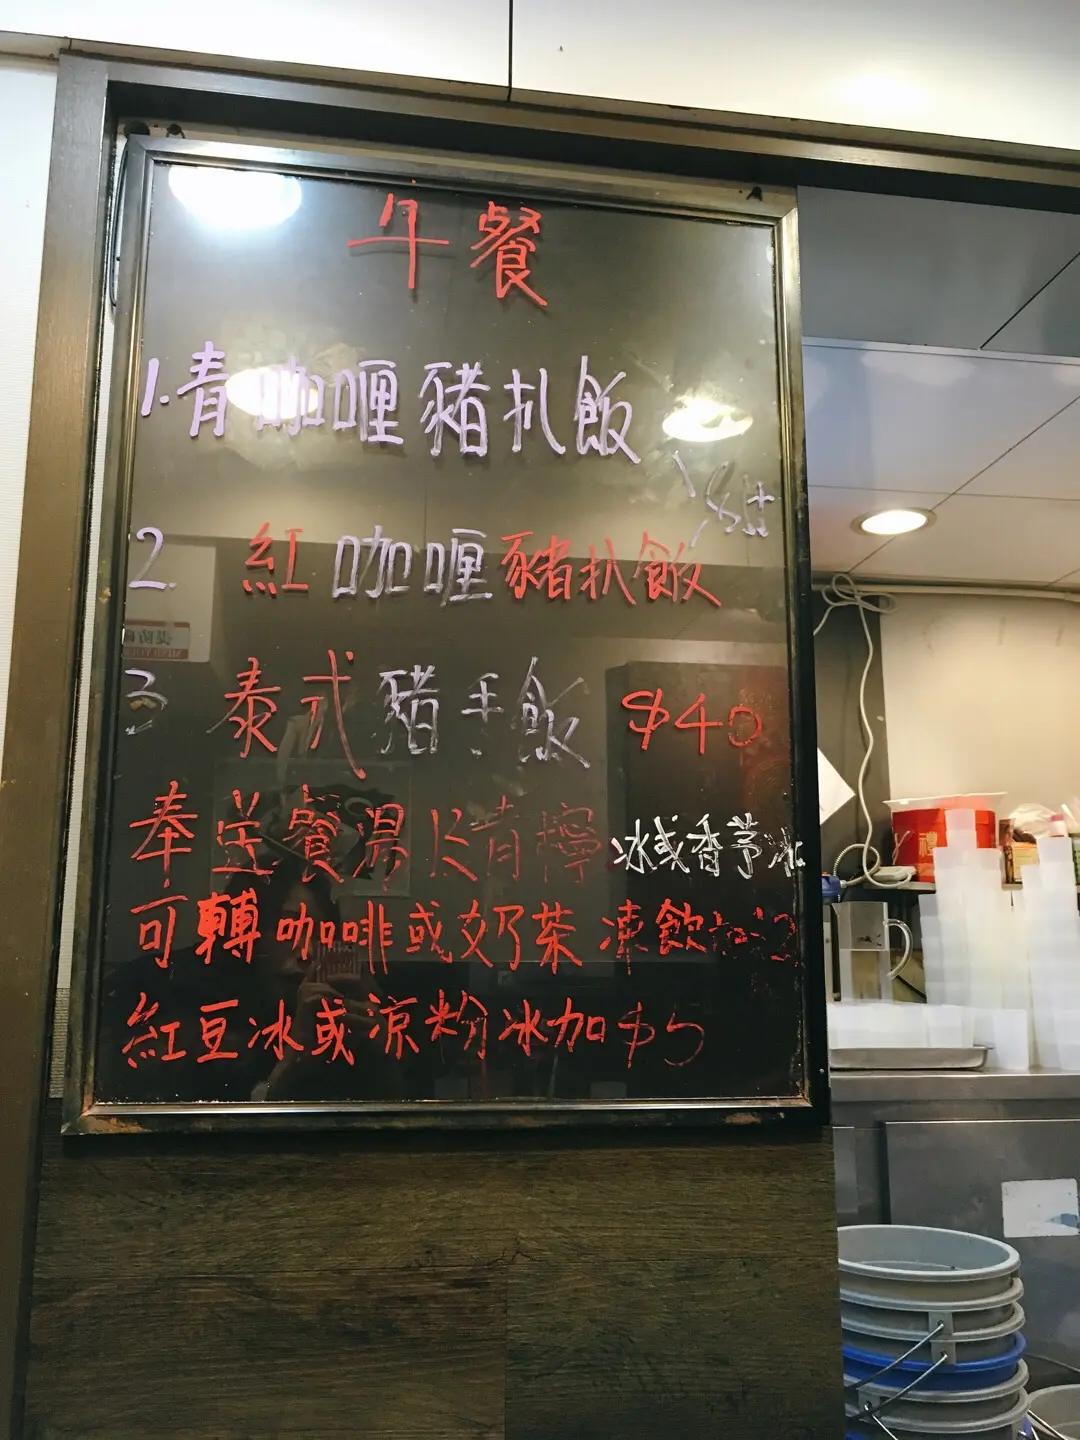 午餐
1.青咖喱豬扒飯
2. 紅咖喱豬扒飯
3 泰式豬手飯 $40
奉送餐湯 青檸冰或香茅冰
可轉咖啡或奶茶 凍飲加$2
紅豆冰或涼粉冰加$5